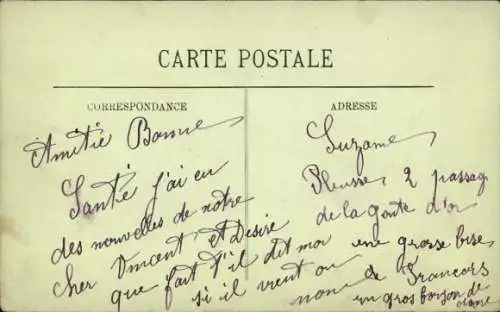 CARTE POSTALE
CORRESPONDANCE
ADRESSE
Amitié Bonne
Santé j'ai eu
des nouvelles de notre
cher Vincent et Desire
que fait t'il dit moi
si il vient ou
Suzanne
2 passag
de la goute d'or
une grosse bise
non de Francois
un gros